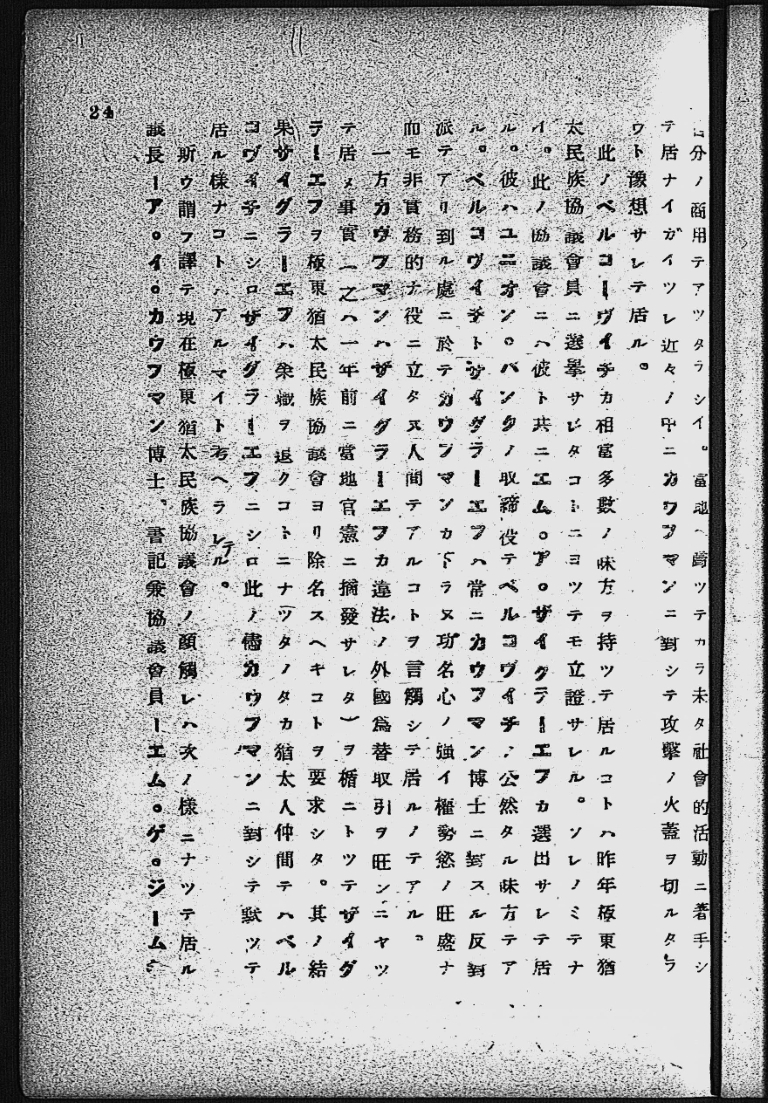 分ノ商用テアツタラシイ。當地ヘ歸ツテカラ未タ社會的活動ニ著手シ
テ居ナイガイツレ近々ノ中ニカウフマンニ對シテ攻擊ノ火蓋ヲ切ルタラ
ウト豫想サレテ居ル。
此ノベルコーヴイチカ相當多數ノ味方ヲ持ツテ居ルコトハ昨年極東猶
太民族協議會員ニ選擧サレタコトニヨツテモ立證サレル。ソレノミテナ
イ。此ノ協議會ニハ彼ト共ニエム。ア。ザイグラーエフカ選出サレテ居
ル。彼ハユニオン。バンクノ取締役テベルコヴイチノ公然タル味方テア
ル。ベルコヴイチトザイグラーエフハ常ニカウフマン博士ニ對スル反對
派テアリ到ル處ニ於テカウフマンカ下ラヌ功名心ノ強イ權勢慾ノ旺盛ナ
而モ非實務的ナ役ニ立タヌ人間テアルコトヲ言觸シテ居ルノテアル。
一方カウフマンハザイグラーエフカ違法ノ外國爲替取引ヲ旺ンニヤツ
テ居タ事實(之ハ一年前ニ當地官憲ニ摘發サレタ)ヲ楯ニトツテザイグ
ラーエフヲ極東猶太民族協議會ヨリ除名スヘキコトヲ要求シタ。其ノ結
果ザイグラーエフハ榮職ヲ退クコトニナツタノタカ猶太人仲間テハベル
コヴイチニシロザイグラーエフニシロ此ノ儘カウフマンニ對シテ默ツテ
居ル樣ナコトハアルマイト考ヘラレテル。
斯ウ謂フ譯テ現在極東猶太民族協議會ノ顏觸レハ次ノ樣ニナツテ居ル
議長ーア。イ。カウフマン博士、書記兼協議會員ーエム。ゲ。ジーム
24